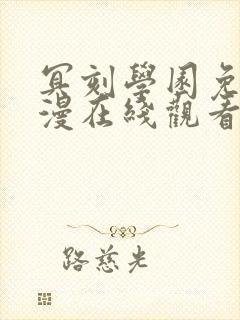 冥刻學園免
漫在綫觀看
路慈光